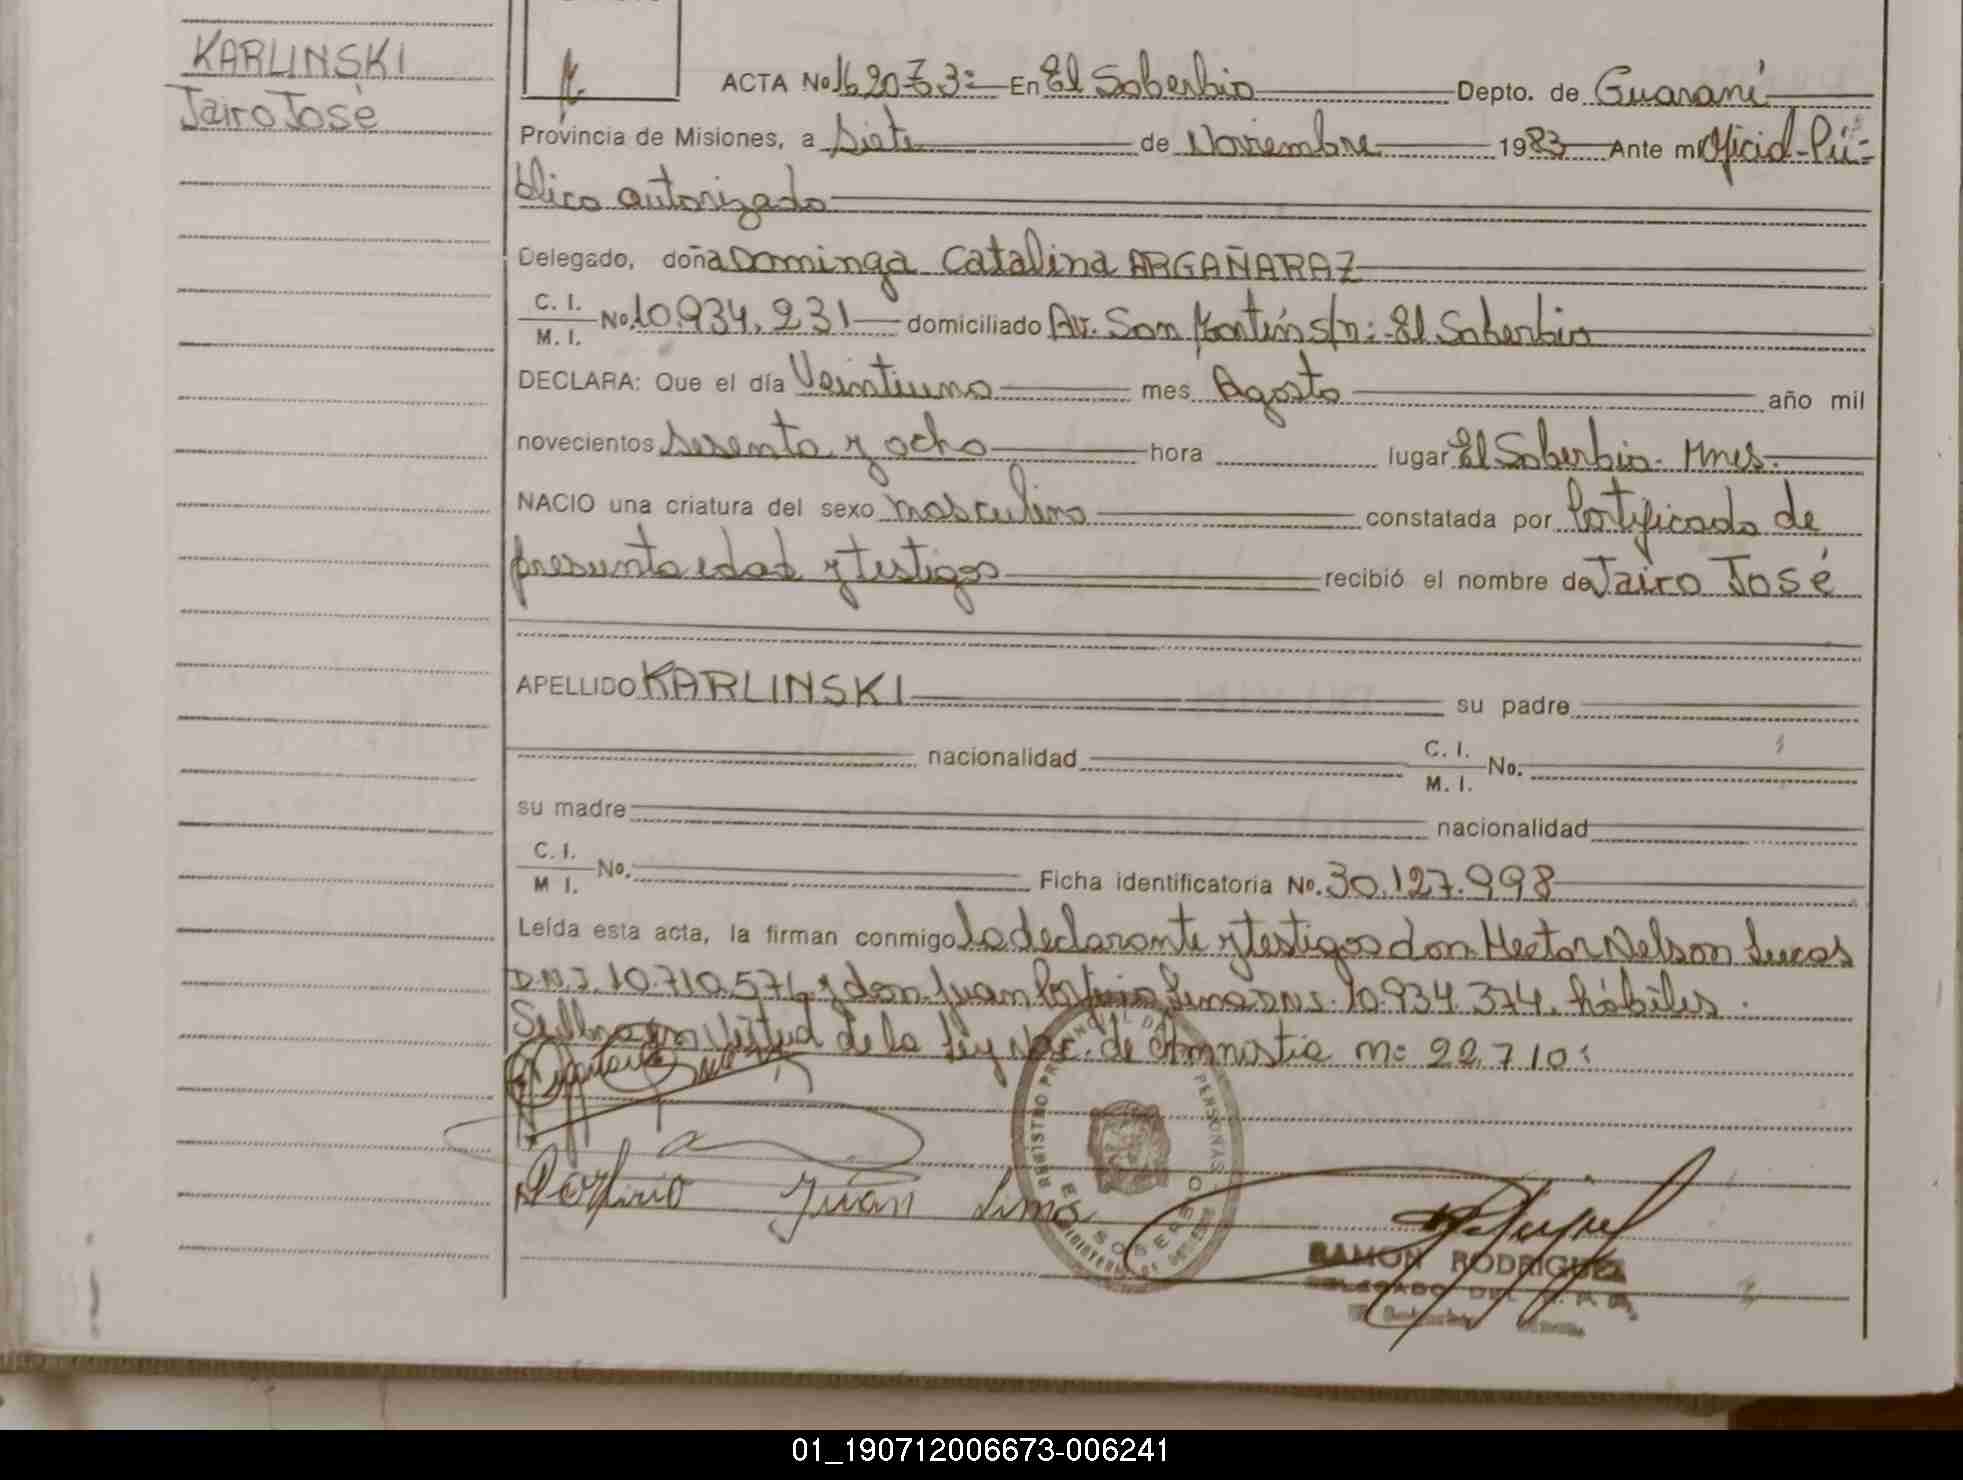 KARLINSKI
Jairo José
ACTA No 162073= En El Soberbio Depto. de Guaraní
Provincia de Misiones, a Siete de Noviembre 1983 Ante mi Oficial-Pú=
blico autorizado
Delegado, doña Dominga Catalina ARGAÑARAZ
C. I.
M. I. No. 10.934.231 domiciliado Av. San Martín s/n: El Soberbio
DECLARA: Que el día Veintiuno mes Agosto año mil
novecientos sesenta y ocho hora lugar El Soberbio- Mnes.
NACIO una criatura del sexo masculino constatada por Certificado de
presunta edad y testigos recibió el nombre de Jairo José
APELLIDO KARLINSKI su padre
nacionalidad C. I.
M. I. No.
su madre nacionalidad
C. I.
M I. No. Ficha identificatoria No. 30.127.998
Leída esta acta, la firman conmigo la declarante y testigos don Hector Nelson Lucas
D.N.I. 10.710.571 y don Juan Porfirio Lima D.N.I. 10.934.374. hábiles.
en virtud de la Ley Nac. de Amnistia nº 22.710:
REGISTRO PROVINCIAL DE PERSONAS
EL SOBERBIO
Porfirio Juan Lima
RAMON RODRIGUEZ
DELEGADO DEL R. P. P.
El Soberbio
01_190712006673-006241